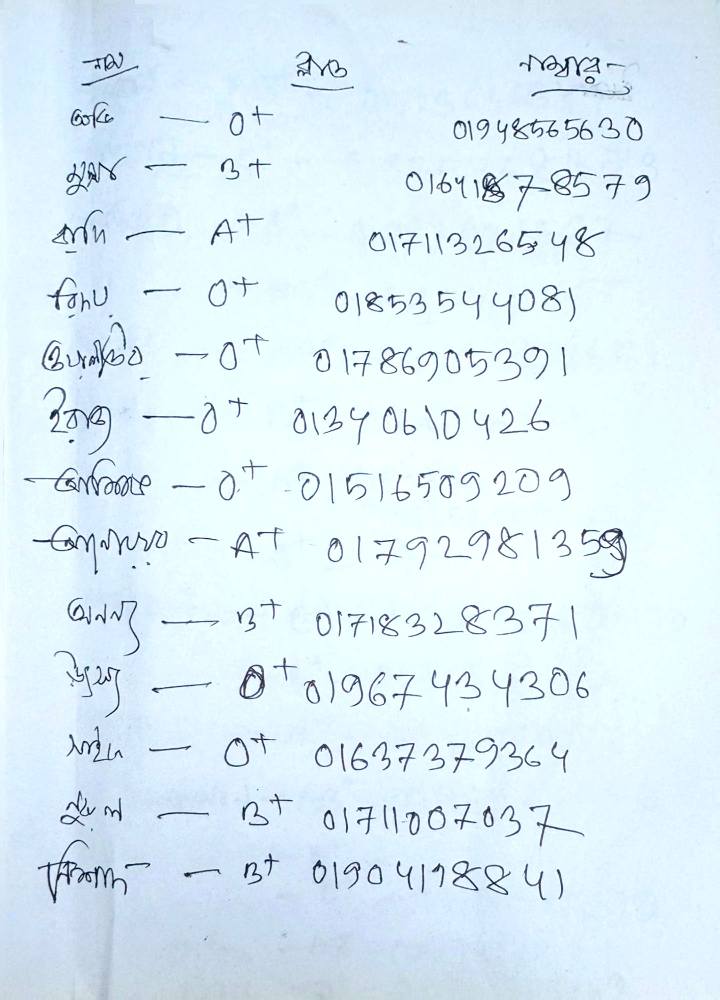 নাম ব্লাড নাম্বার -
রকি — O+ 01948565630
— B+ 0164187-8579
রাদি — A+ 01711326548
রিদয় — O+ 01853544081
— O+ 01786905391
ইরাজ — O+ 01340610426
আতিক — O+ 01516509209
আনোয়ার — A+ 01792981359
অনন্য — B+ 01718328371
— O+ 01967434306
— O+ 01637379364
নুরুল — B+ 01711007037
— B+ 01904198841